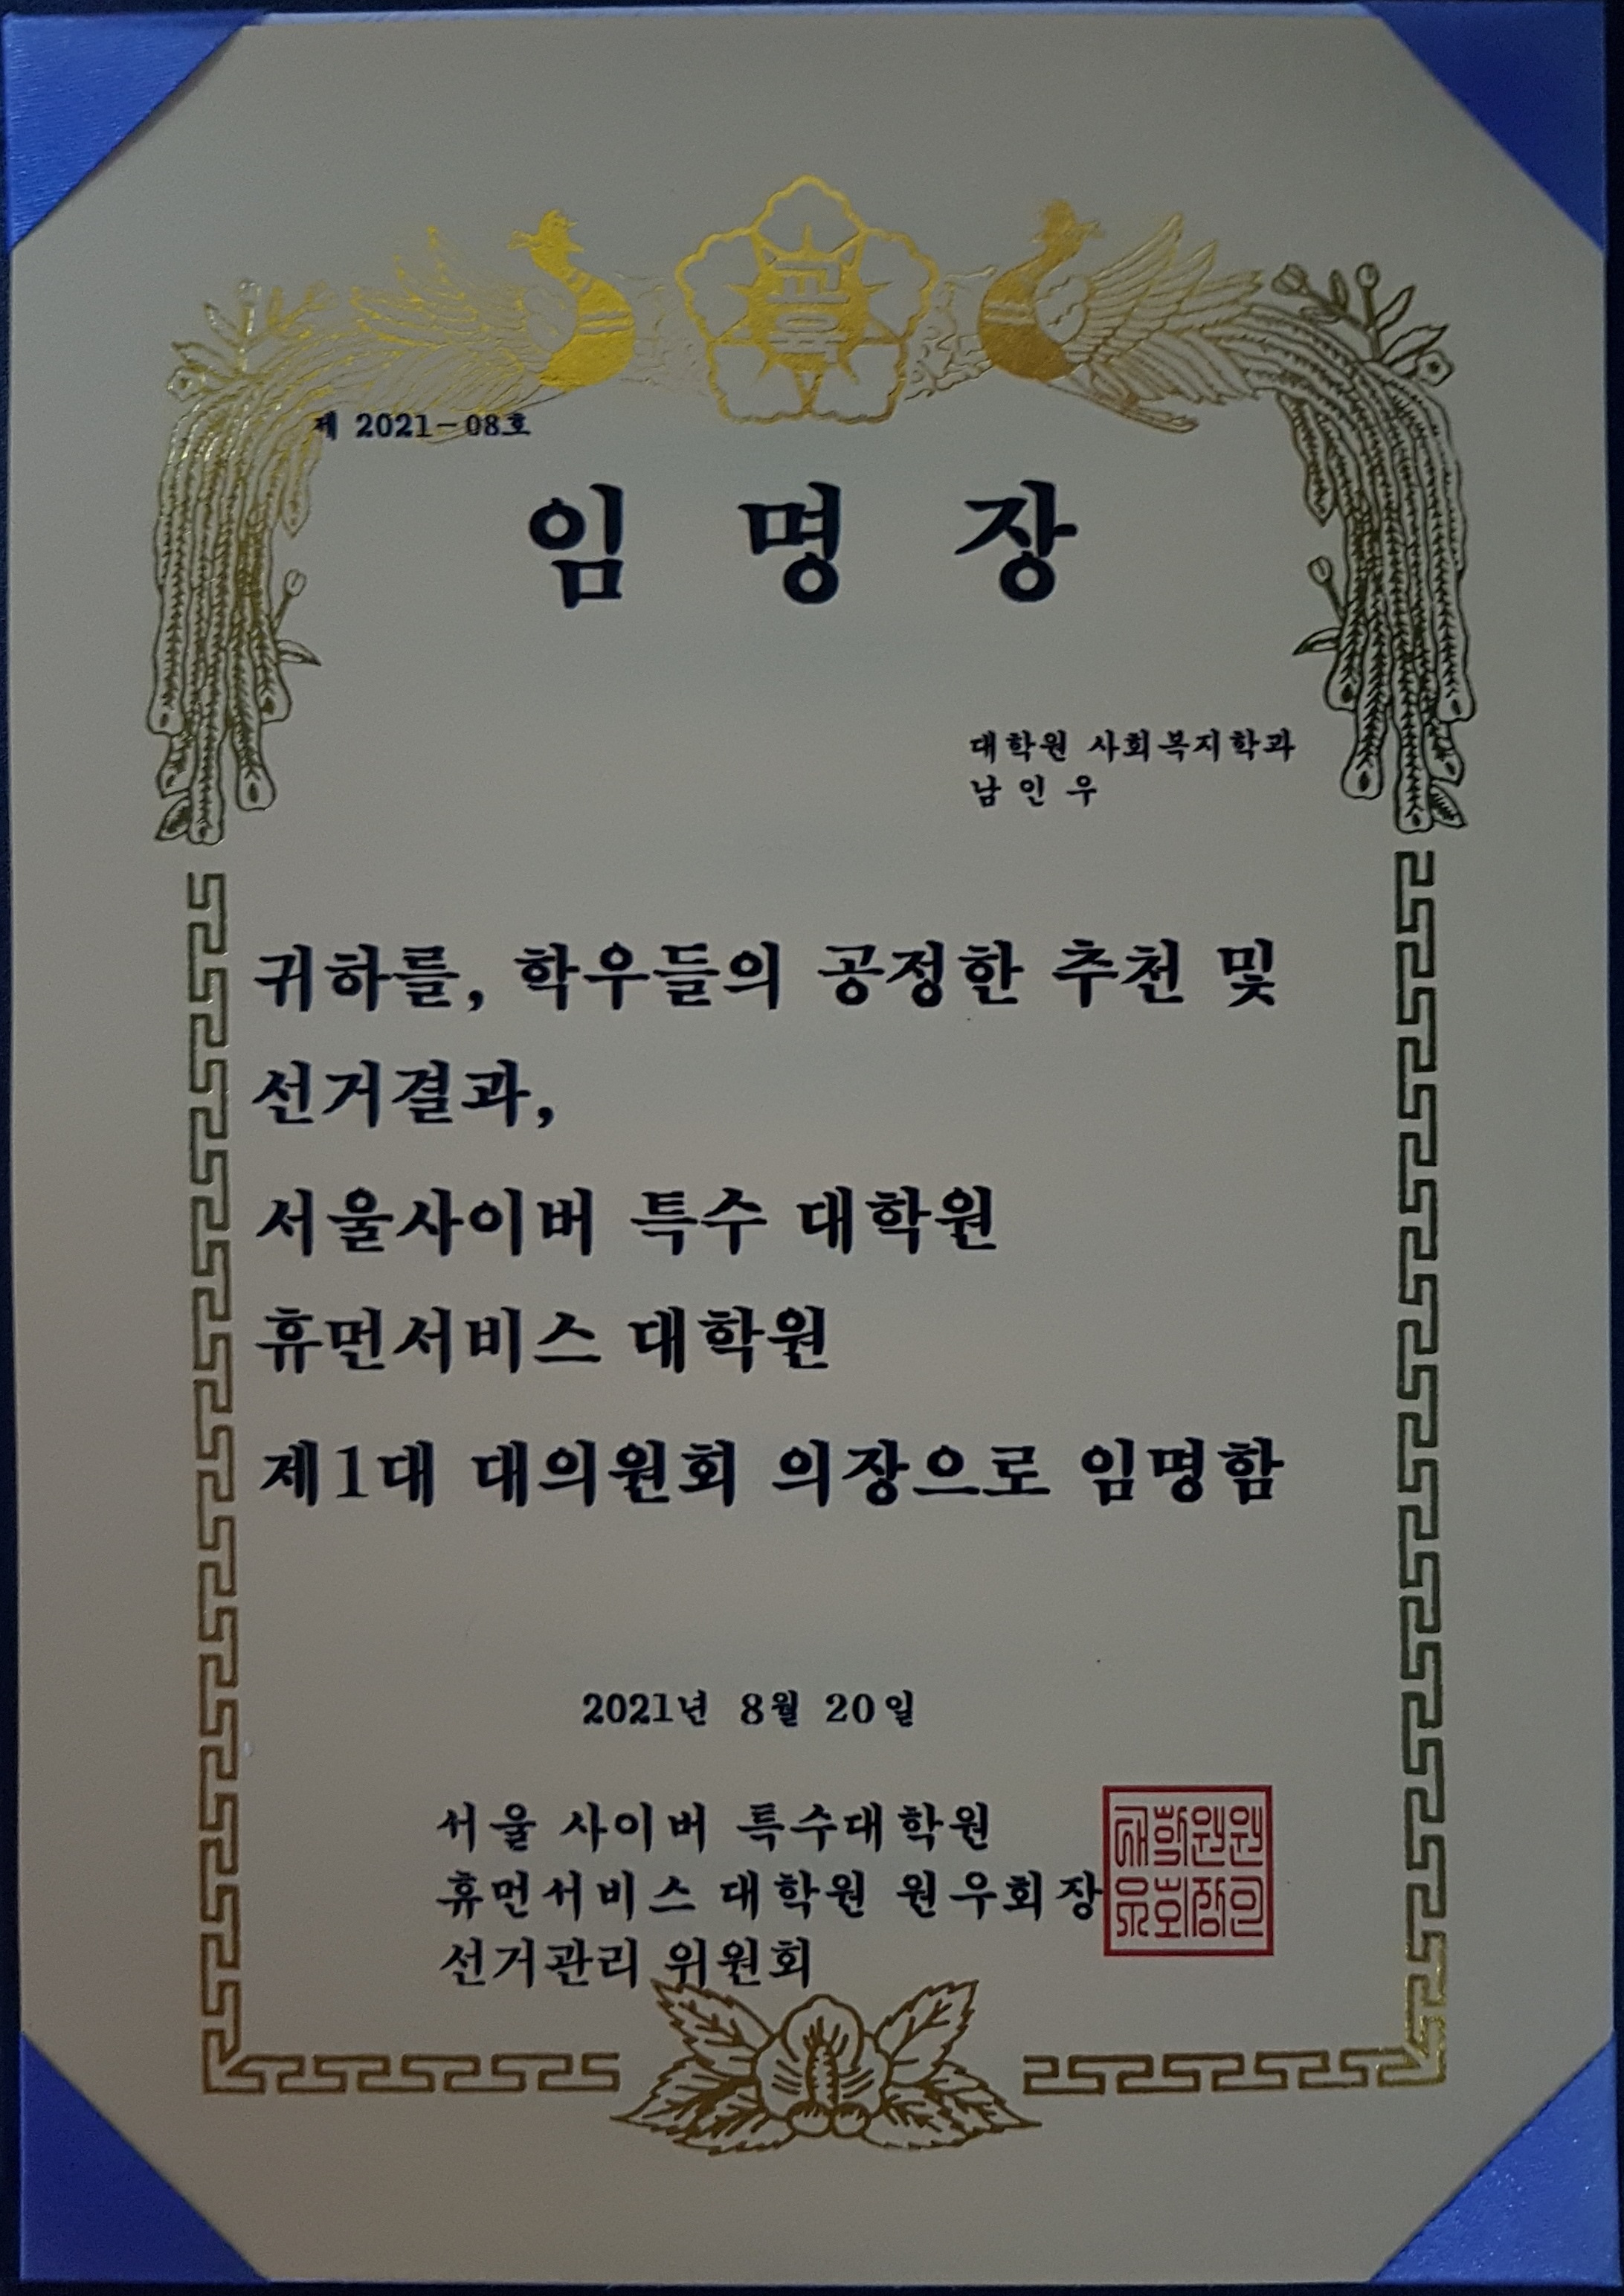 교육
제 2021-08호
임 명 장
대학원 사회복지학과
남 인 우
귀하를, 학우들의 공정한 추천 및
선거결과,
서울사이버 특수 대학원
휴먼서비스 대학원
제1대 대의원회 의장으로 임명함
2021년 8월 20일
서울 사이버 특수대학원
휴먼서비스 대학원 원우회장
선거관리 위원회